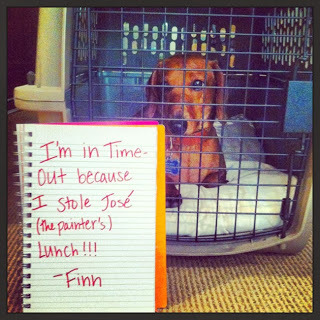 I'm in Time-
Out because
I stole José
(the painter's)
Lunch!!!
-Finn